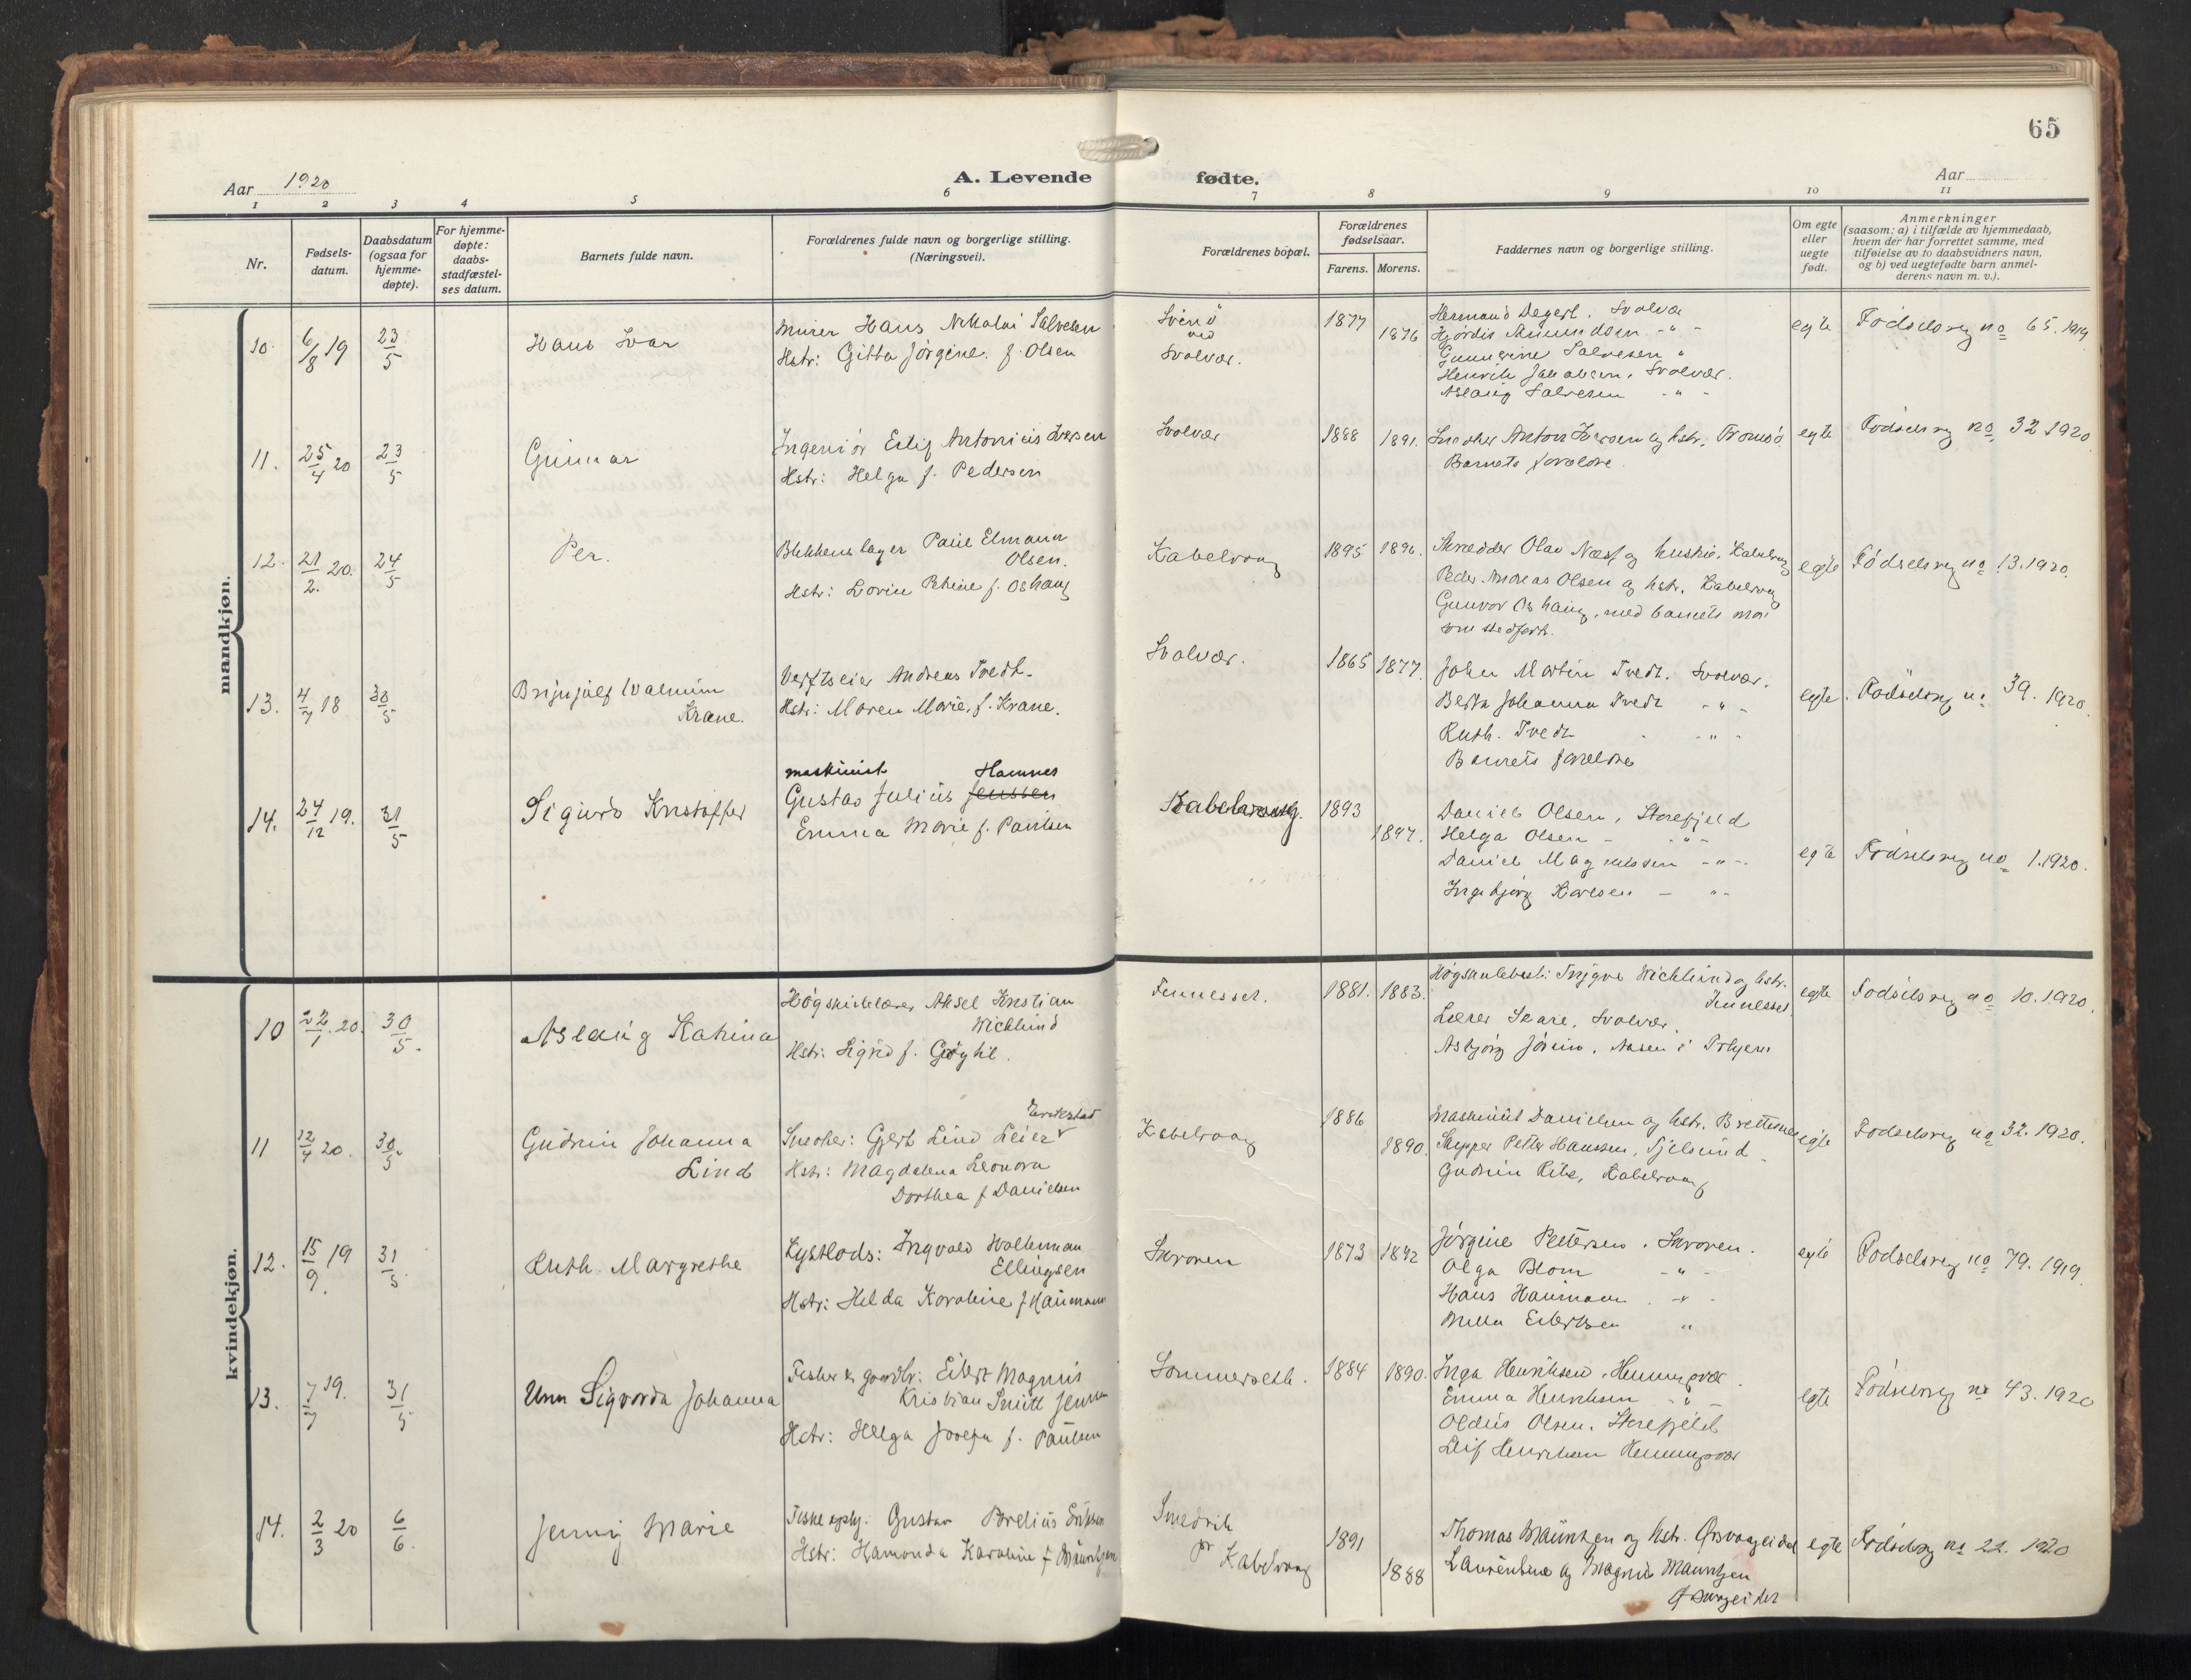 65
Aar 1920
A. Levende fødte.
Aar
1 2 3 4 5 6 7 8 9 10 11
Nr.
Fødsels-
datum.
Daabsdatum
(ogsaa for
hjemme-
døpte).
For hjemme-
døpte:
daabs-
stadfæstel-
ses datum.
Barnets fulde navn.
Forældrenes fulde navn og borgerlige stilling.
(Næringsvei).
Forældrenes bopæl.
Forældrenes
fødselsaar.
Farens. Morens.
Faddernes navn og borgerlige stilling.
Om egte
eller
uegte
født.
Anmerkninger
(saasom: a) i tilfælde av hjemmedaab,
hvem der har forrettet samme, med
tilføielse av to daabsvidners navn,
og b) ved uegtefødte barn anmel-
derens navn m. v.).
mandkjøn.
10. 6/8 19 23/5
Hans Ivar
Murer Hans Nikolai Salvesen
Hstr: Gitta Jørgine f. Olsen
Svinø
ved
Svolvær.
1877 1876
Hermand Degert. Svolvær
Hjørdis Amundsen - " -
Salvesen "
Henrik Jakobsen. Svolvær.
Aslaug Salvesen - " -
egte
Fødselsreg no 65. 1919
11. 25/4 20 23/5
Gunnar
Ingeniør Eilif Antonius Iversen
Hstr: Helga f. Pedersen
Svolvær
1888 1891.
Snedker Anton Iversen og hstr. Tromsø
Barnets forældre.
egte
Fødselsreg no 32 1920
12. 21/2. 20. 24/5
Per.
Blikkenslager Paul Elmann
Olsen.
Hstr: Lovise Petrine f. Oshaug
Kabelvaag
1895 1896.
Skrædder Olav Næss og hustru. Kabelvaag
Peder Andreas Olsen og hstr. Kabelvaag
Gunvor Oshaug, med barnets mor
som stedfortr.
egte
Fødselsreg no 13. 1920.
13. 4/7 18 30/5
Brynjulf Walmin
Krane.
Verftseier Andreas Tvedt.
Hstr: Maren Marie, f. Krane.
Svolvær.
1865 1877.
John Martin Tvedt. Svolvær.
Berta Johanna Tvedt - " -
Ruth. Tvedt - " -
Barnets forældre
egte.
Fødselsreg no 39. 1920.
14. 24/12 19. 31/5
Sigurd Kristoffer
maskinist Hamnes
Gustav Julius Jenssen
Emma Marie f. Paulsen
Kabelvaag.
1893 1897.
Daniel Olsen, Storefjeld
Helga Olsen - " -
Daniel Magnussen - " -
Ingebjørg Karlsen - " -
egte
Fødselsreg no 1. 1920.
kvindekjøn.
10 22/1. 20. 30/5.
Aslaug Katrina
Høgskulelærer Aksel Kristian
Wicklund
Hstr: Sigrid f.
Finnesset.
1881. 1883.
Høgskulebest: Trygve Wicklund og hstr.
Finnesset.
Lærer Skare, Svolvær.
Asbjørg
egte
Fødselsreg no 10. 1920.
11 12/4 20. 30/5.
Gudrun Johanna
Lind
Snedker: Gjert Lind Leier
Hstr: Magdalena Leonora
Dorthea f Danielsen
Kabelvaag
1886 1890.
Maskinist Danielsen og hstr. Brettesnes
Skipper Peter Hanssen, Tjelsund
Gudrun Ribe, Kabelvaag
egte
Fødselsreg no 32. 1920.
12. 15/9. 19 31/5.
Ruth Margrethe
Kystlods: Ingvald Wolleman
Ellingsen
Hstr: Helda Karoline f Haumann
Skroven
1873 1892
Jørgine Pettersen. Skroven.
Olga Blom - " -
Hans Haumann - " -
Milla Eilertsen "
egte
Fødselsreg no 79. 1919.
13. 7/7 19. 31/5
Unn Sigvorda Johanna
Fisker & gaardbr: Eilert Magnus
Kristian Smitt Jensen
Hstr: Helga Josefa f. Paulsen
Sommerseth.
1884 1890.
Inga Henriksen, Henningsvær.
Emma Henriksen - " -
Oldus Olsen. Storefjeld
Leif Henriksen Henningsvær
egte
Fødselsreg no 43. 1920
14. 2/3 20 6/6.
Jenny Marie
Fiskeopsy. Gustav Brelius Eriksen
Hstr: Hamonda Karoline f Mauritzen
Smedvik
pr Kabelvaag
1891 1888
Thomas Mauritzen og hstr. Ørsvaageidet
Laurentine og Magnus Mauritzen
Ørsvaageidet
egte
Fødselsreg no 22. 1920